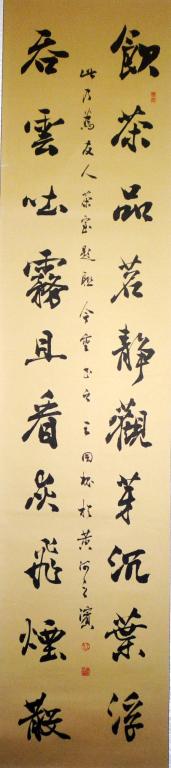 飲茶品茗靜觀芽沉葉浮
吞雲吐霧且看炎飛煙散
此乃為友人茶室題聯今重書之王國於黃河之濱